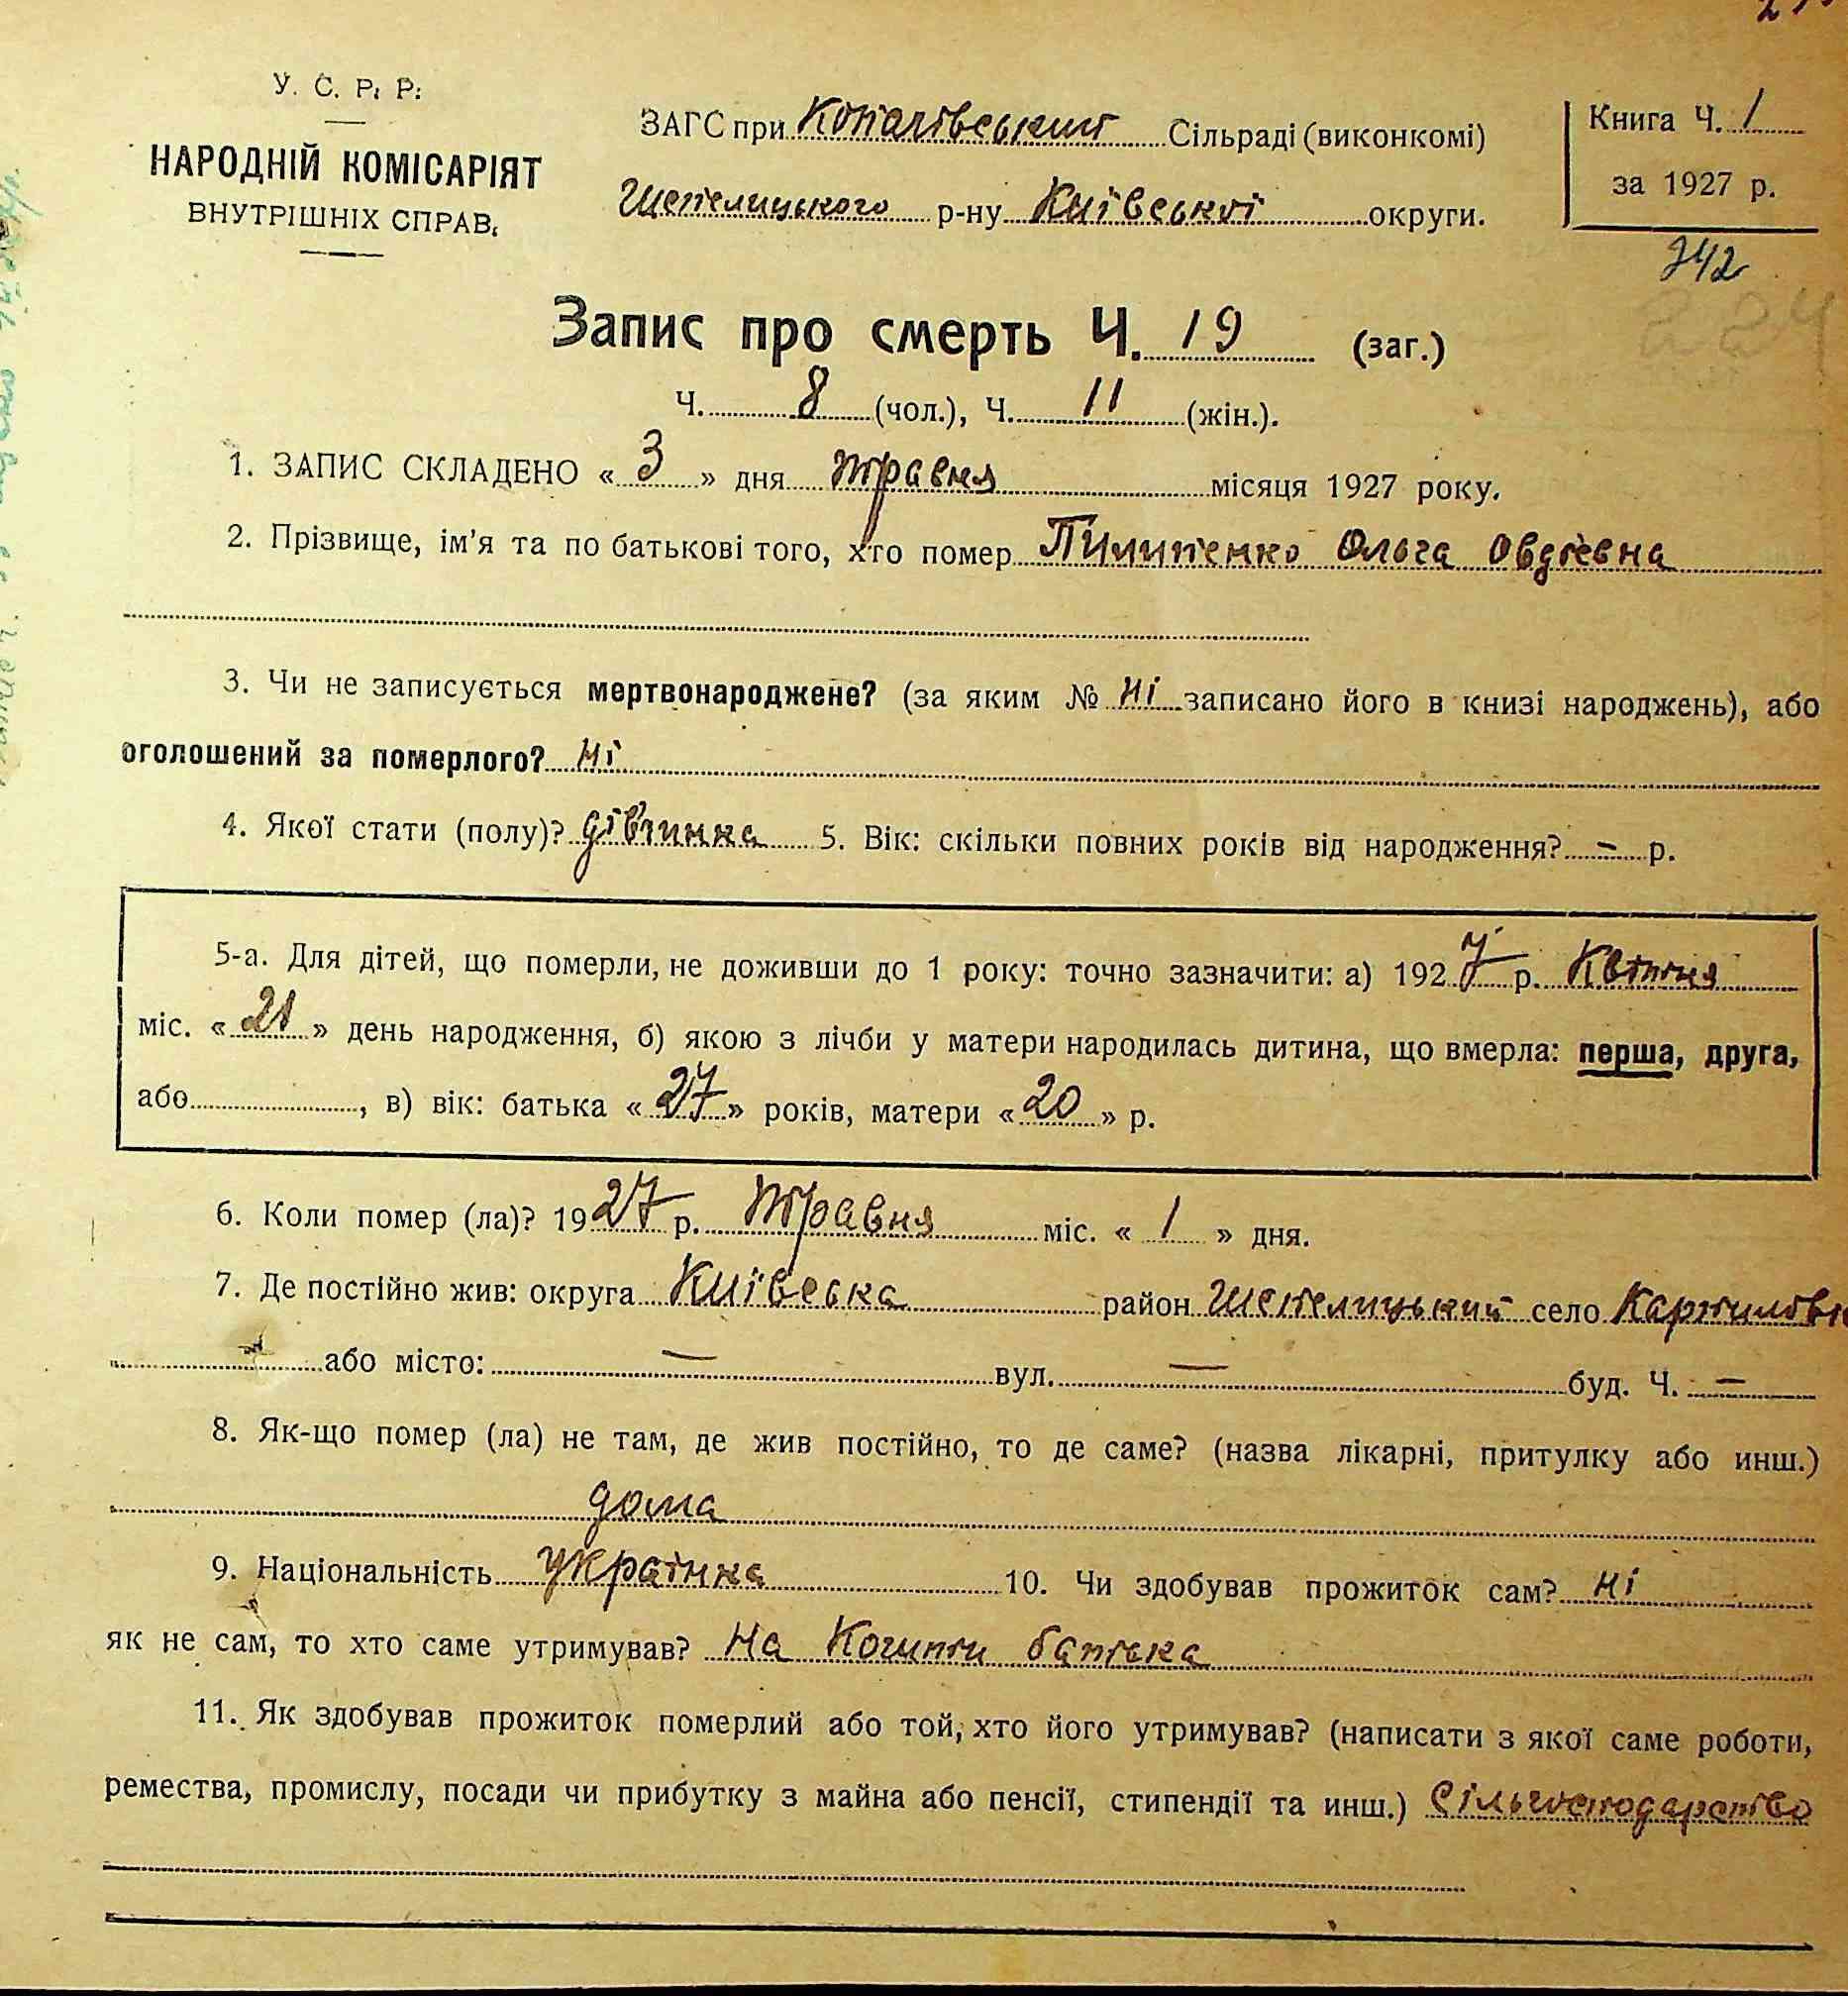 У. С. Р. Р.
НАРОДНІЙ КОМІСАРІЯТ
ВНУТРІШНІХ СПРАВ.
ЗАГС при Копачівський Сільраді (виконкомі)
Шепелицького р-ну Київської округи.
Книга Ч. 1
за 1927 р.
342
224
Запис про смерть Ч. 19 (заг.)
Ч. 8 (чол.), Ч. 11 (жін.).
1. ЗАПИС СКЛАДЕНО « 3 » дня травня місяця 1927 року.
2. Прізвище, ім'я та по батькові того, хто помер Пилипенко Ольга Овдієвна
3. Чи не записується мертвонароджене? (за яким № ні записано його в книзі народжень), або
оголошений за померлого? ні
4. Якої стати (полу)? дівчинка 5. Вік: скільки повних років від народження? - р.
5-а. Для дітей, що померли, не доживши до 1 року: точно зазначити: а) 1927 р. Квітня
міс. « 21 » день народження, б) якою з лічби у матери народилась дитина, що вмерла: перша, друга,
або , в) вік: батька « 27 » років, матери « 20 » р.
6. Коли помер (ла)? 1927 р. Травня міс. « 1 » дня.
7. Де постійно жив: округа Київська район Шепелицький село
або місто: — вул. — буд. Ч. —
8. Як-що помер (ла) не там, де жив постійно, то де саме? (назва лікарні, притулку або инш.)
дома
9. Національність українка 10. Чи здобував прожиток сам? ні
як не сам, то хто саме утримував? На Кошти батька
11. Як здобував прожиток померлий або той, хто його утримував? (написати з якої саме роботи,
ремества, промислу, посади чи прибутку з майна або пенсії, стипендії та инш.) Сільгосподарство